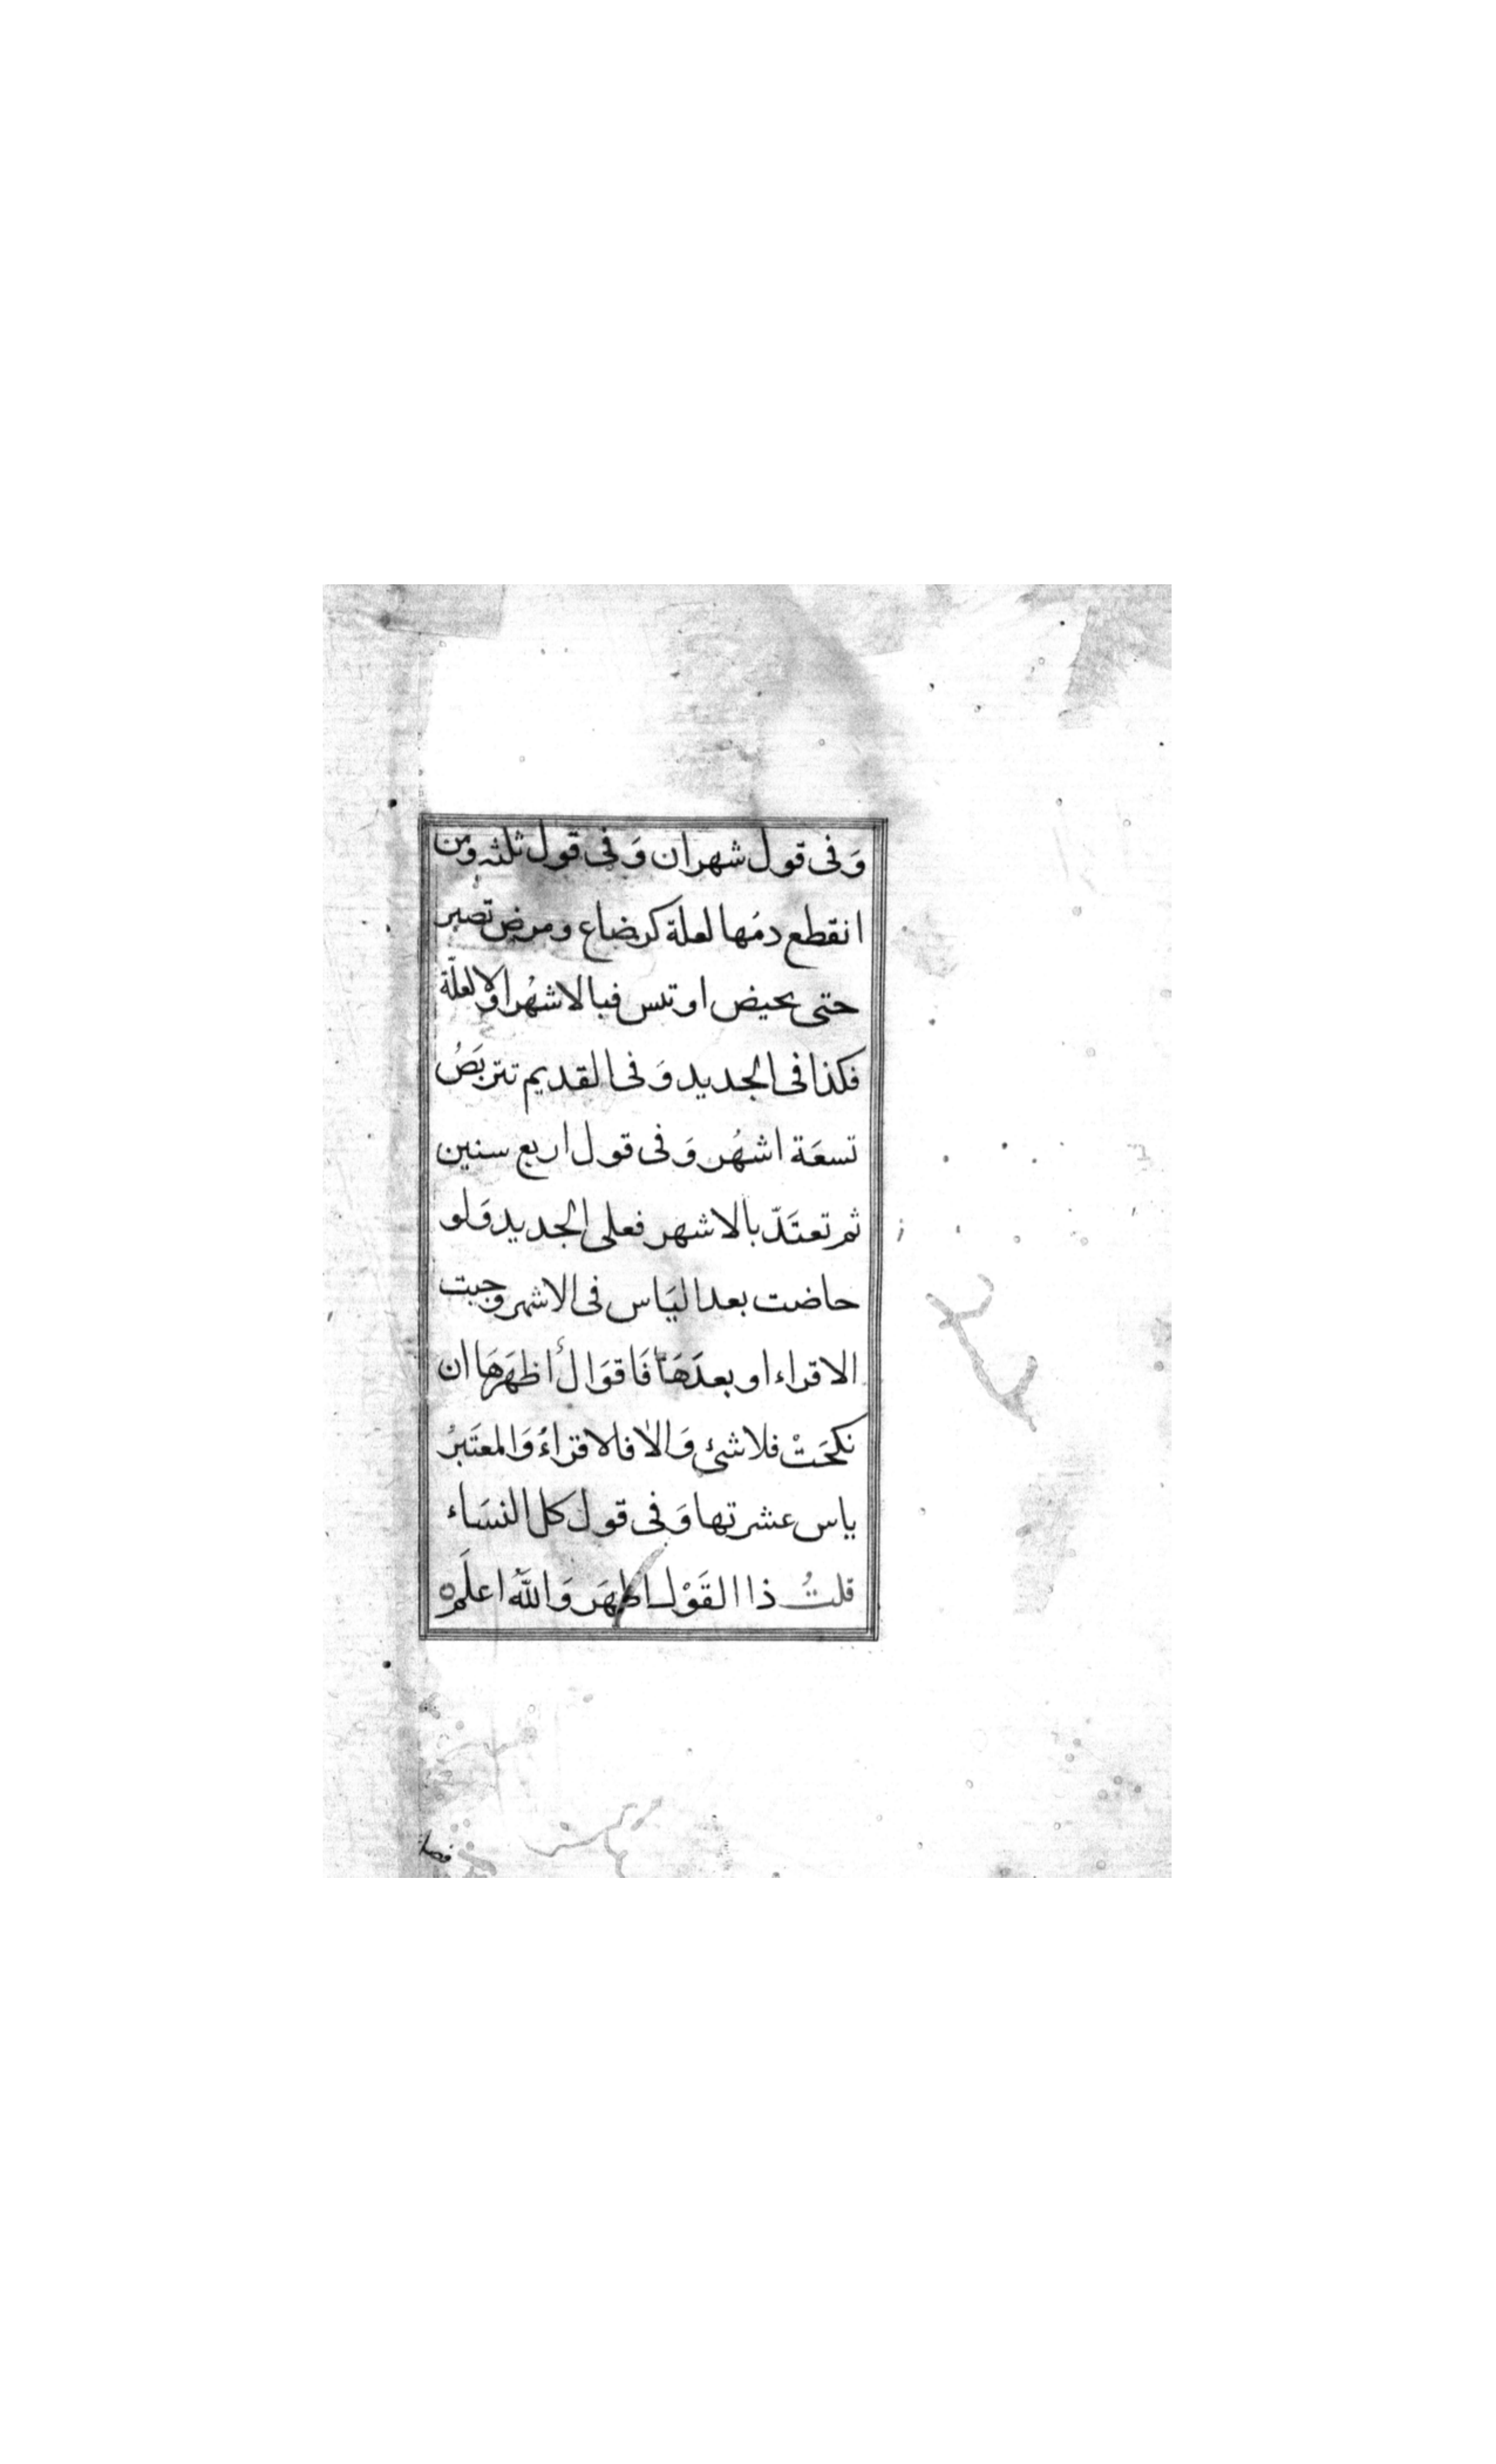 وَفى قول شهران وَفى قول ثلثه ومن
انقطع دمُها لعلة كرضاع ومرض تصبر
حتى يحيض او تيس فبالاشهُر اولا لعلّة
فكذا فى الجديد وَفى القديم تتربَصُ
تسعَة اشهُر وَفى قول اربع سنين
ثم تعتَدّ بالاشهر فعلى الجديد وَلو
حاضت بعد اليَاس فى الاشهر وجبت
الاقراء او بعدَهَا فَاقوَالٌ اظهَرهَا ان
نكحَتْ فلا شئ وَالا فالاقراءُ وَالمعتَبرُ
ياس عشرتها وَفى قول كل النسَاء
قلتُ ذا القَوْل اظهَر وَاللّهُ اعلَم
فصل